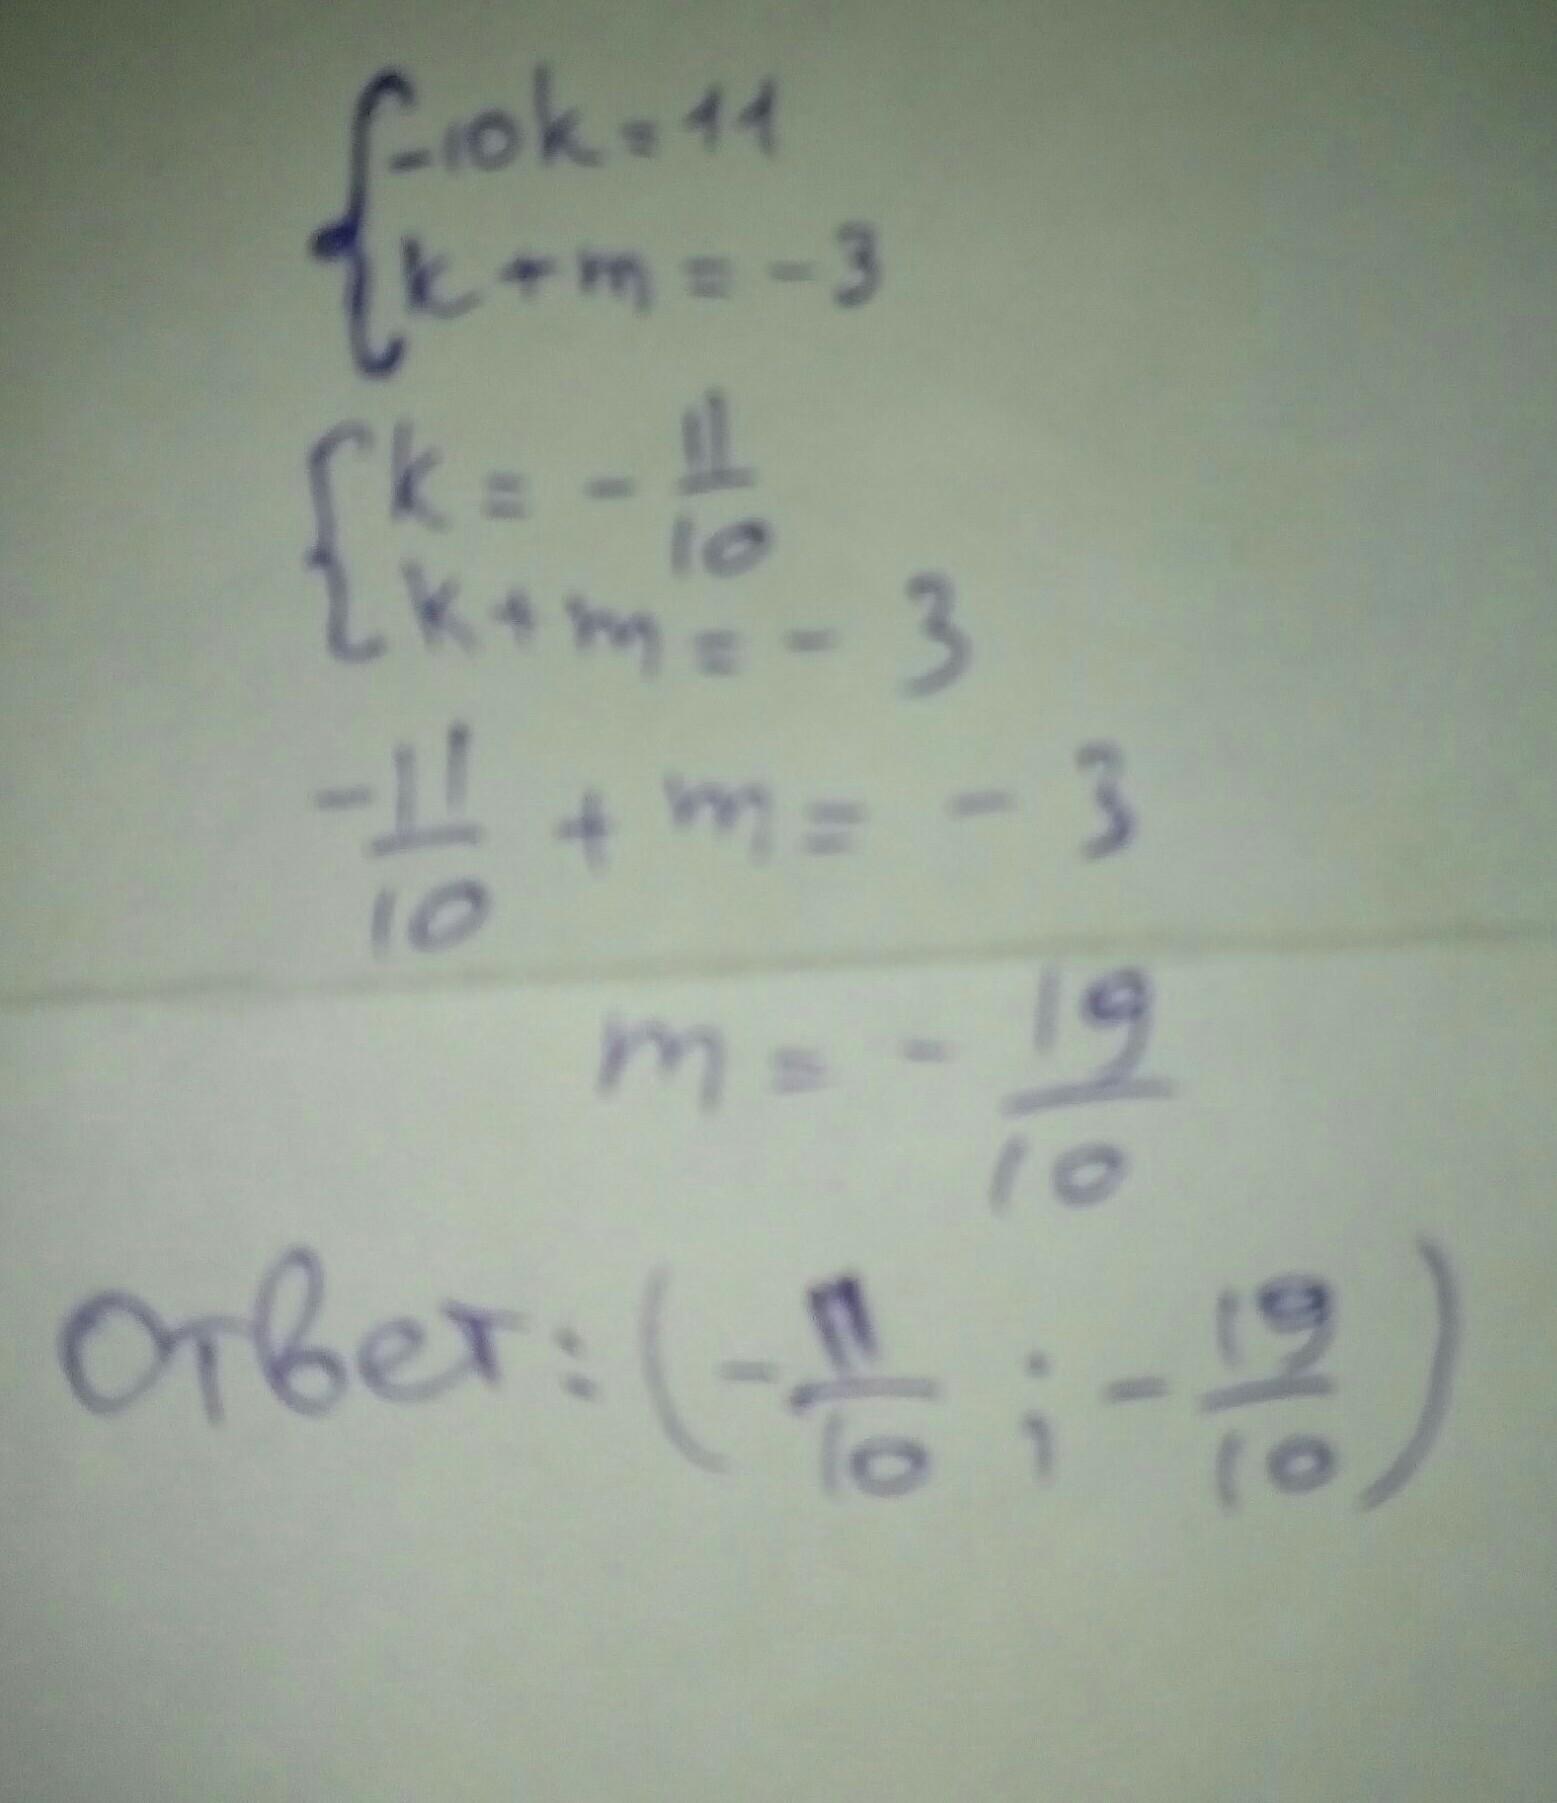 {-10k=11
{k+m=-3
{k=-11/10
{k+m=-3
-11/10+m=-3
m=-19/10
Ответ:(-11/10;-19/10)